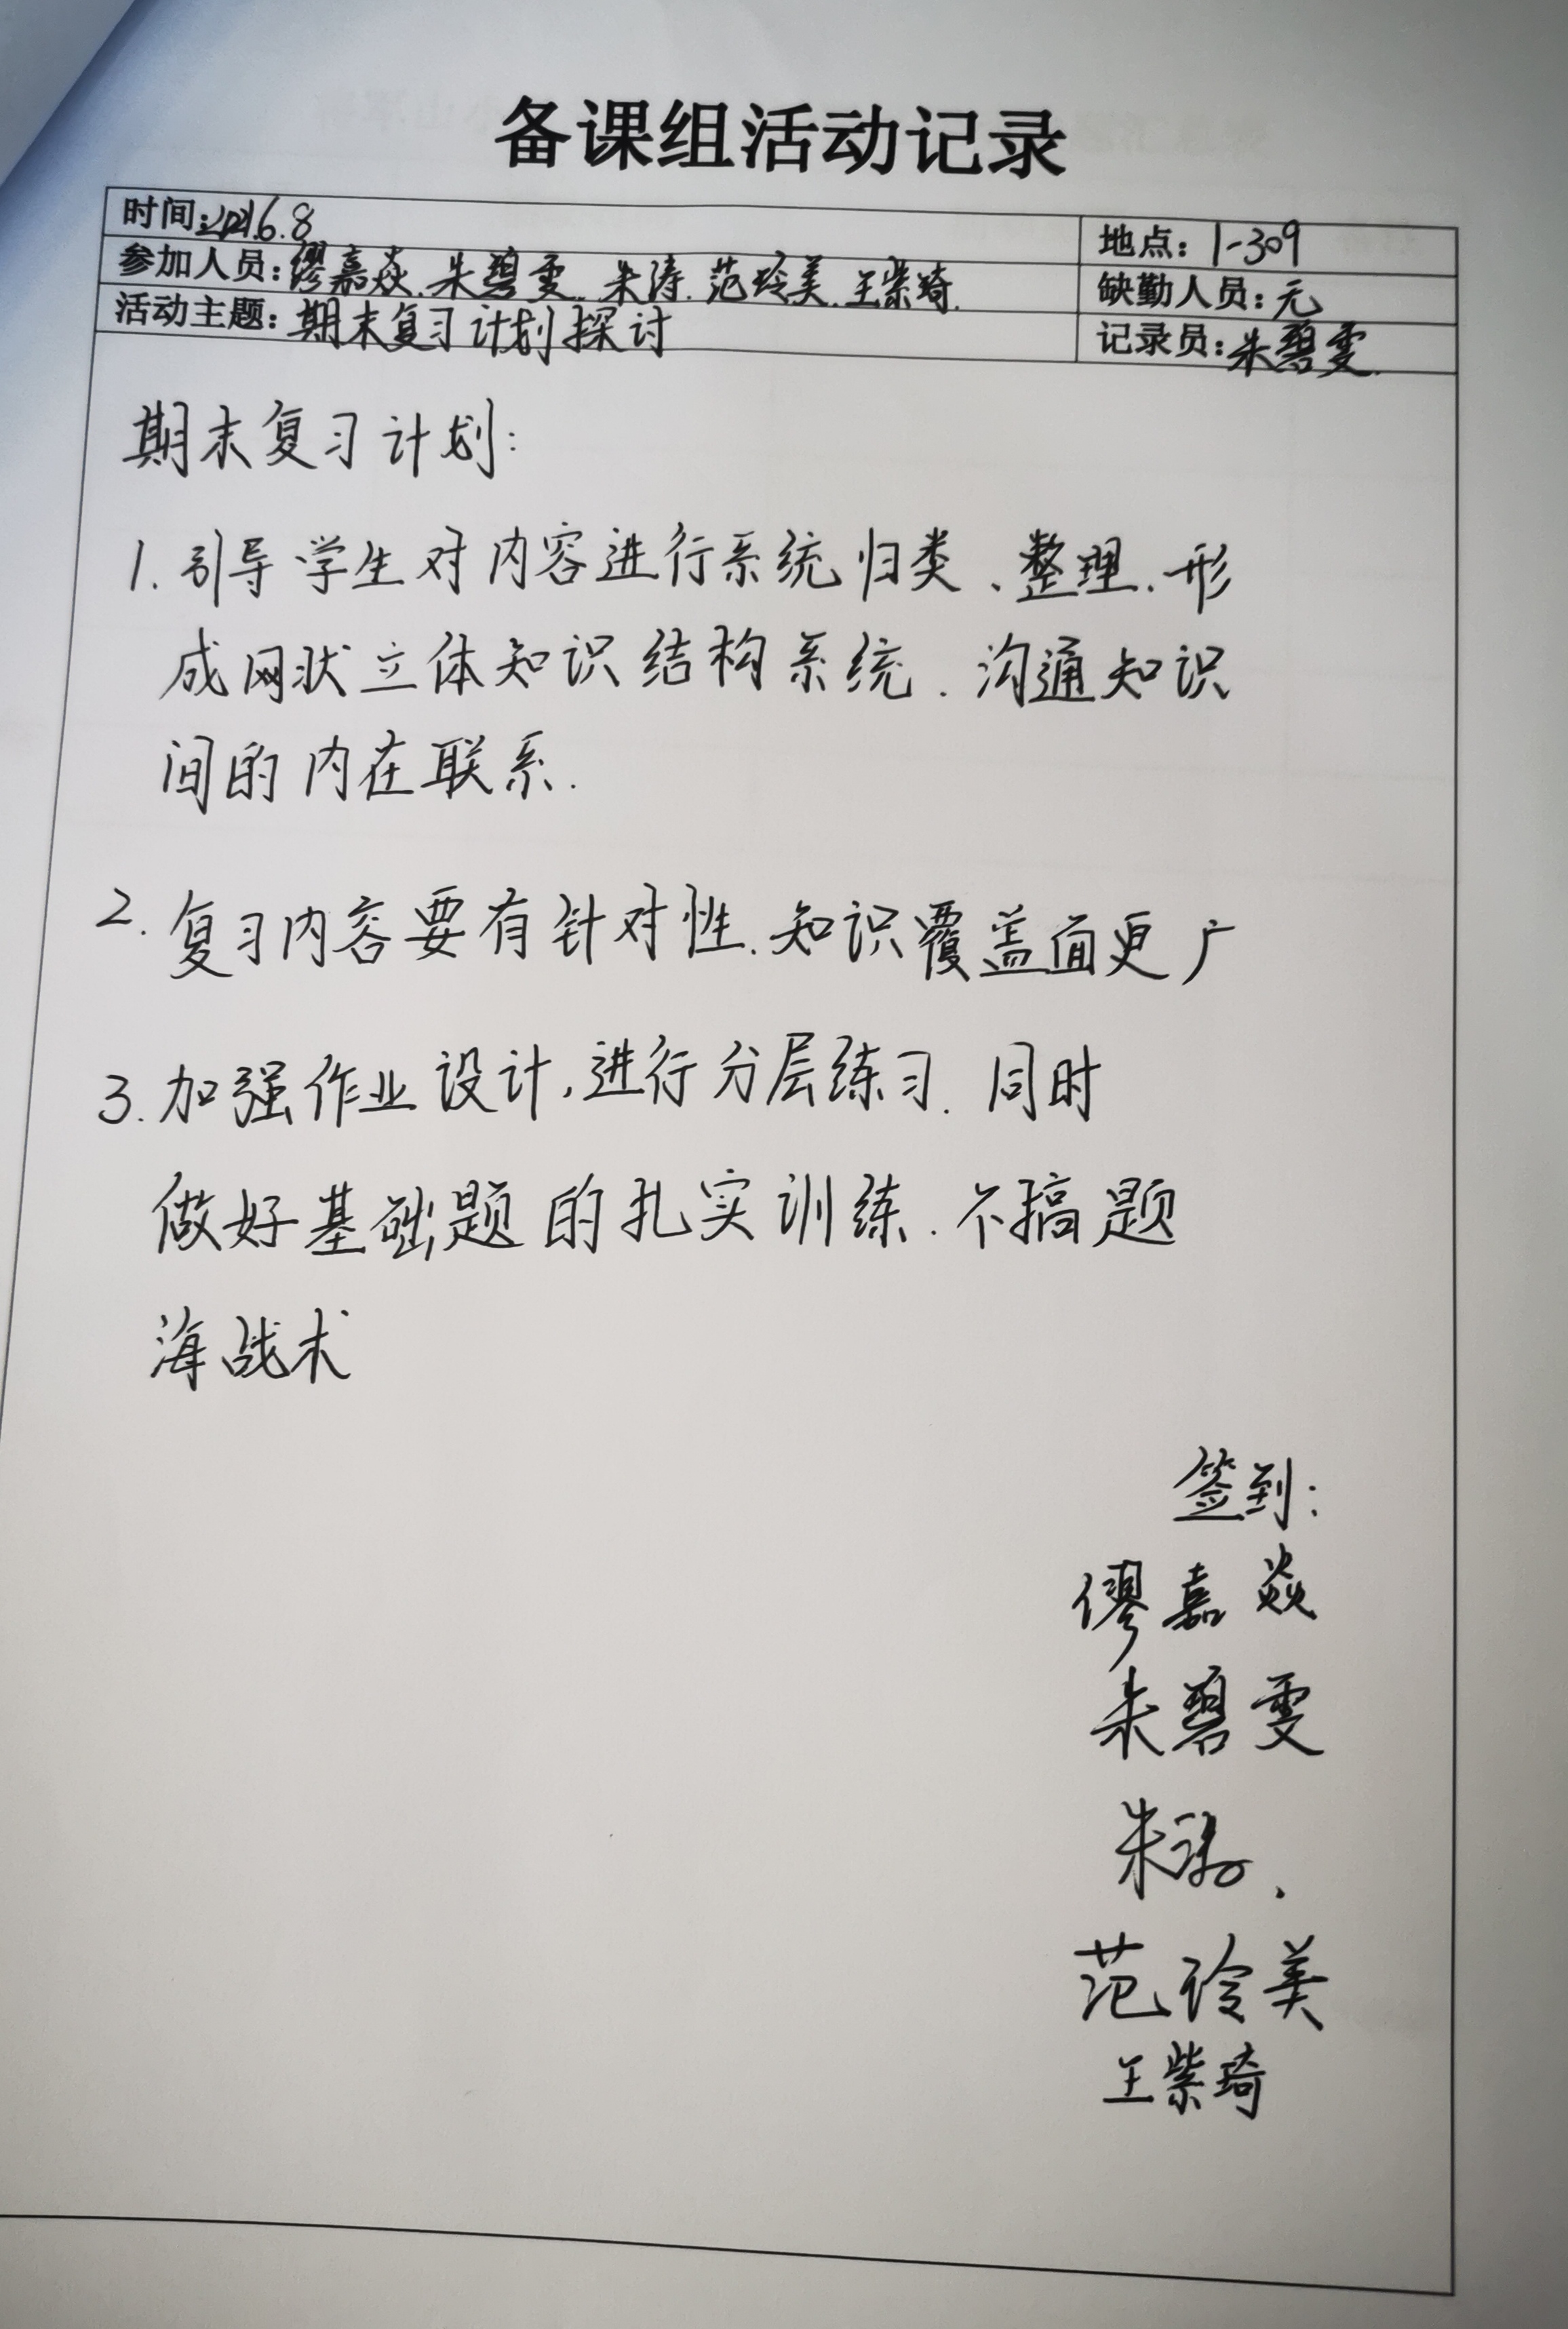 备课组活动记录
时间:2021.6.8 地点:1-309
参加人员:缪嘉焱.朱碧雯.朱涛.范玲美.王紫琦. 缺勤人员:无
活动主题:期末复习计划探讨 记录员:朱碧雯.
期末复习计划:
1.引导学生对内容进行系统归类、整理.形
成网状立体知识结构系统.沟通知识
间的内在联系.
2.复习内容要有针对性.知识覆盖面更广
3.加强作业设计,进行分层练习.同时
做好基础题的扎实训练.不搞题
海战术
签到:
缪嘉焱
朱碧雯
朱涛、
范玲美
王紫琦